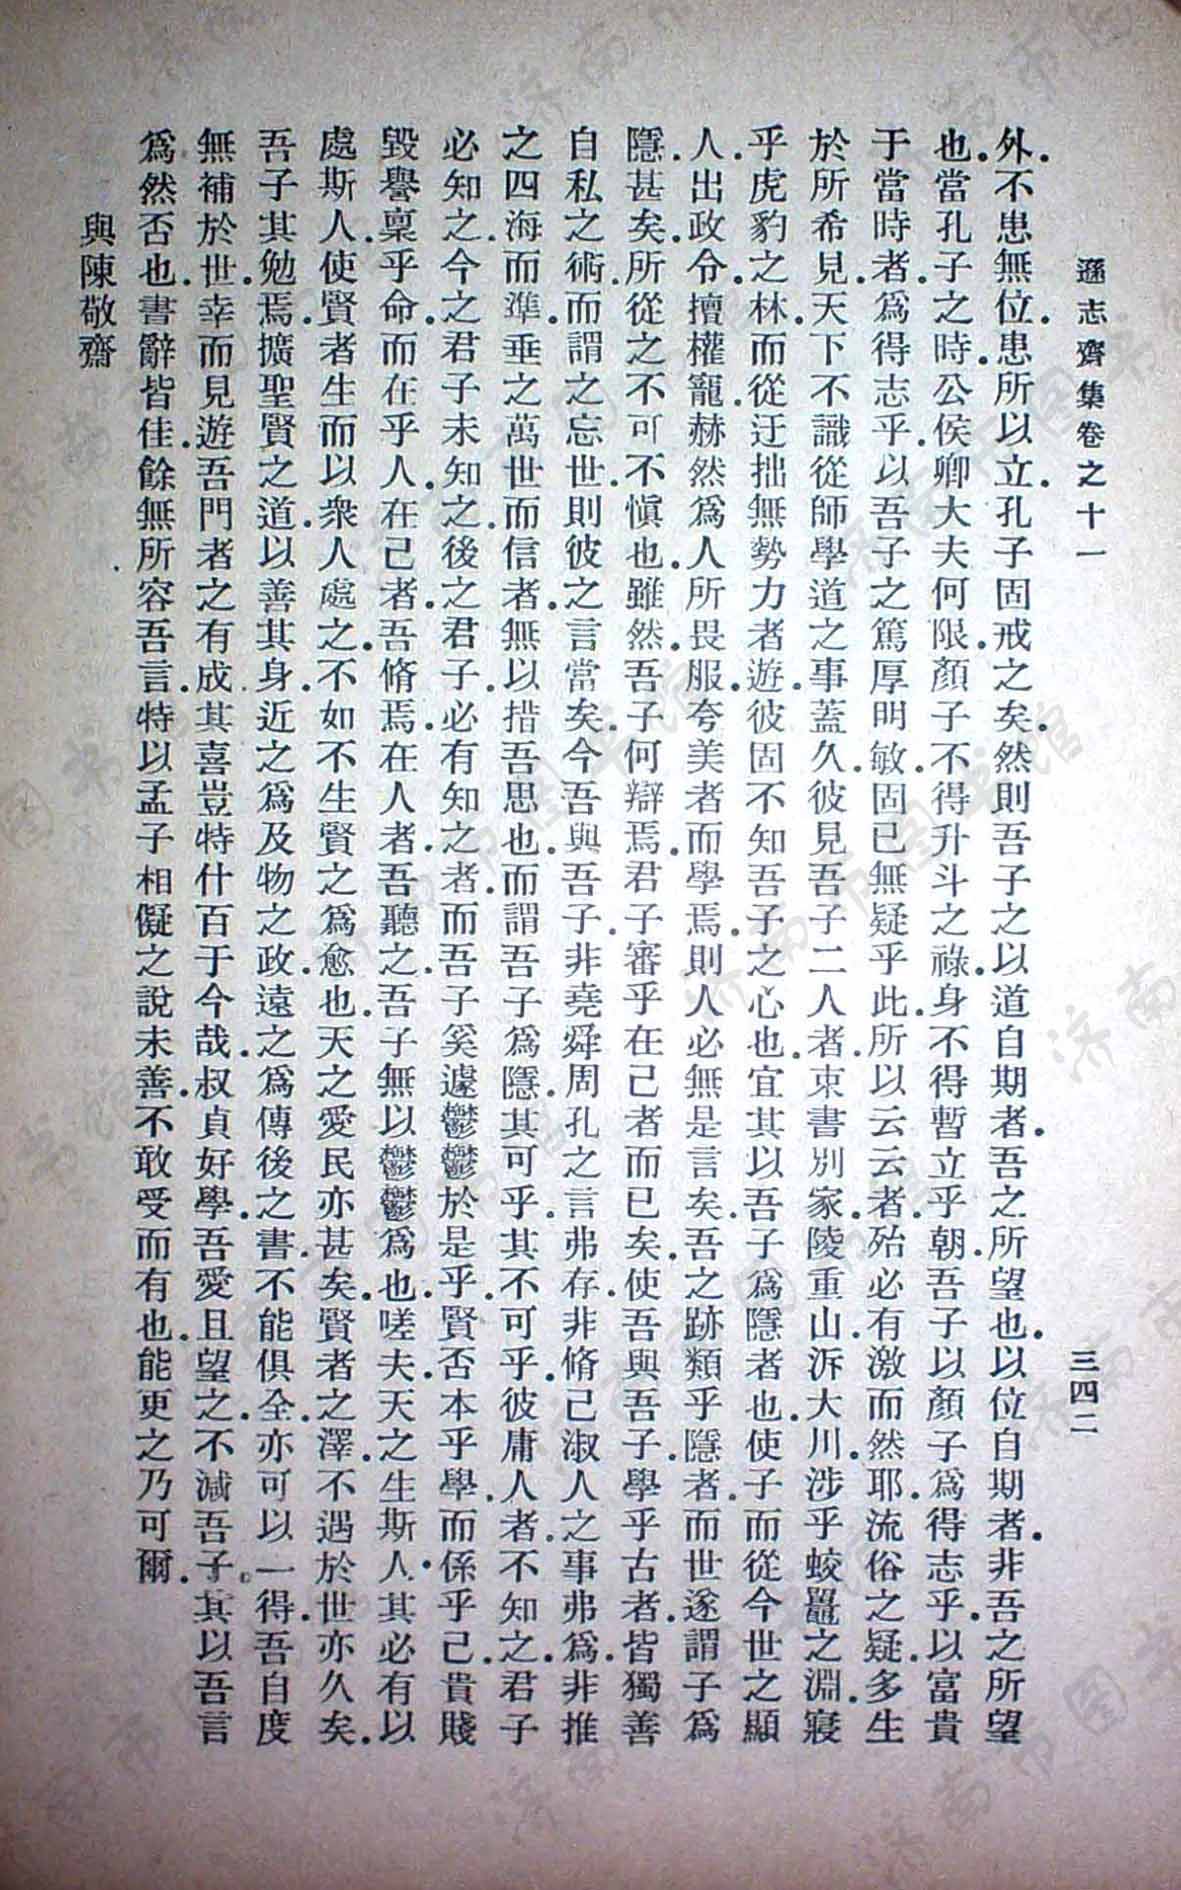 遜志齋集卷之十一
三四二
外.不患無位.患所以立.孔子固戒之矣.然則吾子之以道自期者.吾之所望也.以位自期者.非吾之所望
也.當孔子之時.公侯卿大夫何限.顏子不得升斗之祿.身不得暫立乎朝.吾子以顏子爲得志乎.以富貴
于當時者.爲得志乎.以吾子之篤厚明敏.固已無疑乎此.所以云云者.殆必有激而然耶.流俗之疑.多生
於所希見.天下不識從師學道之事蓋久.彼見吾子二人者.束書別家.陵重山.泝大川.涉乎蛟鼉之淵.寢
乎虎豹之林.而從迂拙無勢力者遊.彼固不知吾子之心也.宜其以吾子爲隱者也.使子而從今世之顯
人.出政令.擅權寵.赫然爲人所畏服.夸美者而學焉.則人必無是言矣.吾之跡類乎隱者.而世遂謂子爲
隱甚矣.所從之不可不愼也.雖然.吾子何辯焉.君子審乎在己者而已矣.使吾與吾子.學乎古者.皆獨善
自私之術.而謂之忘世.則彼之言當矣.今吾與吾子.非堯舜周孔之言弗存.非脩己淑人之事弗爲.非推
之四海而準.垂之萬世而信者.無以措吾思也.而謂吾子爲隱.其可乎.其不可乎.彼庸人者.不知之.君子
必知之.今之君子未知之.後之君子.必有知之者.而吾子奚遽鬱鬱於是乎.賢否本乎學.而係乎己.貴賤
毀譽稟乎命.而在乎人.在己者.吾脩焉.在人者.吾聽之.吾子無以鬱鬱爲也.嗟夫.天之生斯人.其必有以
處斯人.使賢者生而以衆人處之.不如不生賢之爲愈也.天之愛民亦甚矣.賢者之澤.不遇於世亦久矣.
吾子其勉焉.擴聖賢之道.以善其身.近之爲及物之政.遠之爲傳後之書.不能俱全.亦可以一得.吾自度
無補於世.幸而見遊吾門者之有成.其喜豈特什百于今哉.叔貞好學.吾愛且望之.不減吾子.其以吾言
爲然否也.書辭皆佳.餘無所容吾言.特以孟子相儗之說未善.不敢受而有也.能更之乃可爾.
與陳敬齋